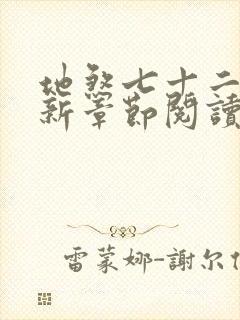 地煞七十二
新章節閱讀
雷蒙娜-謝尔